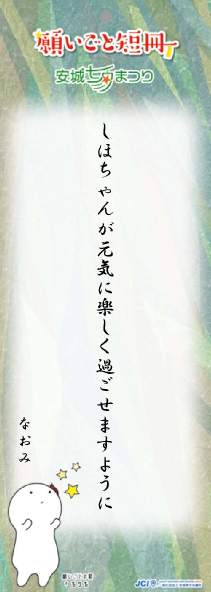 願いごと短冊
安城七夕まつり
しほちゃんが元気に楽しく過ごせますように
なおみ
JCI